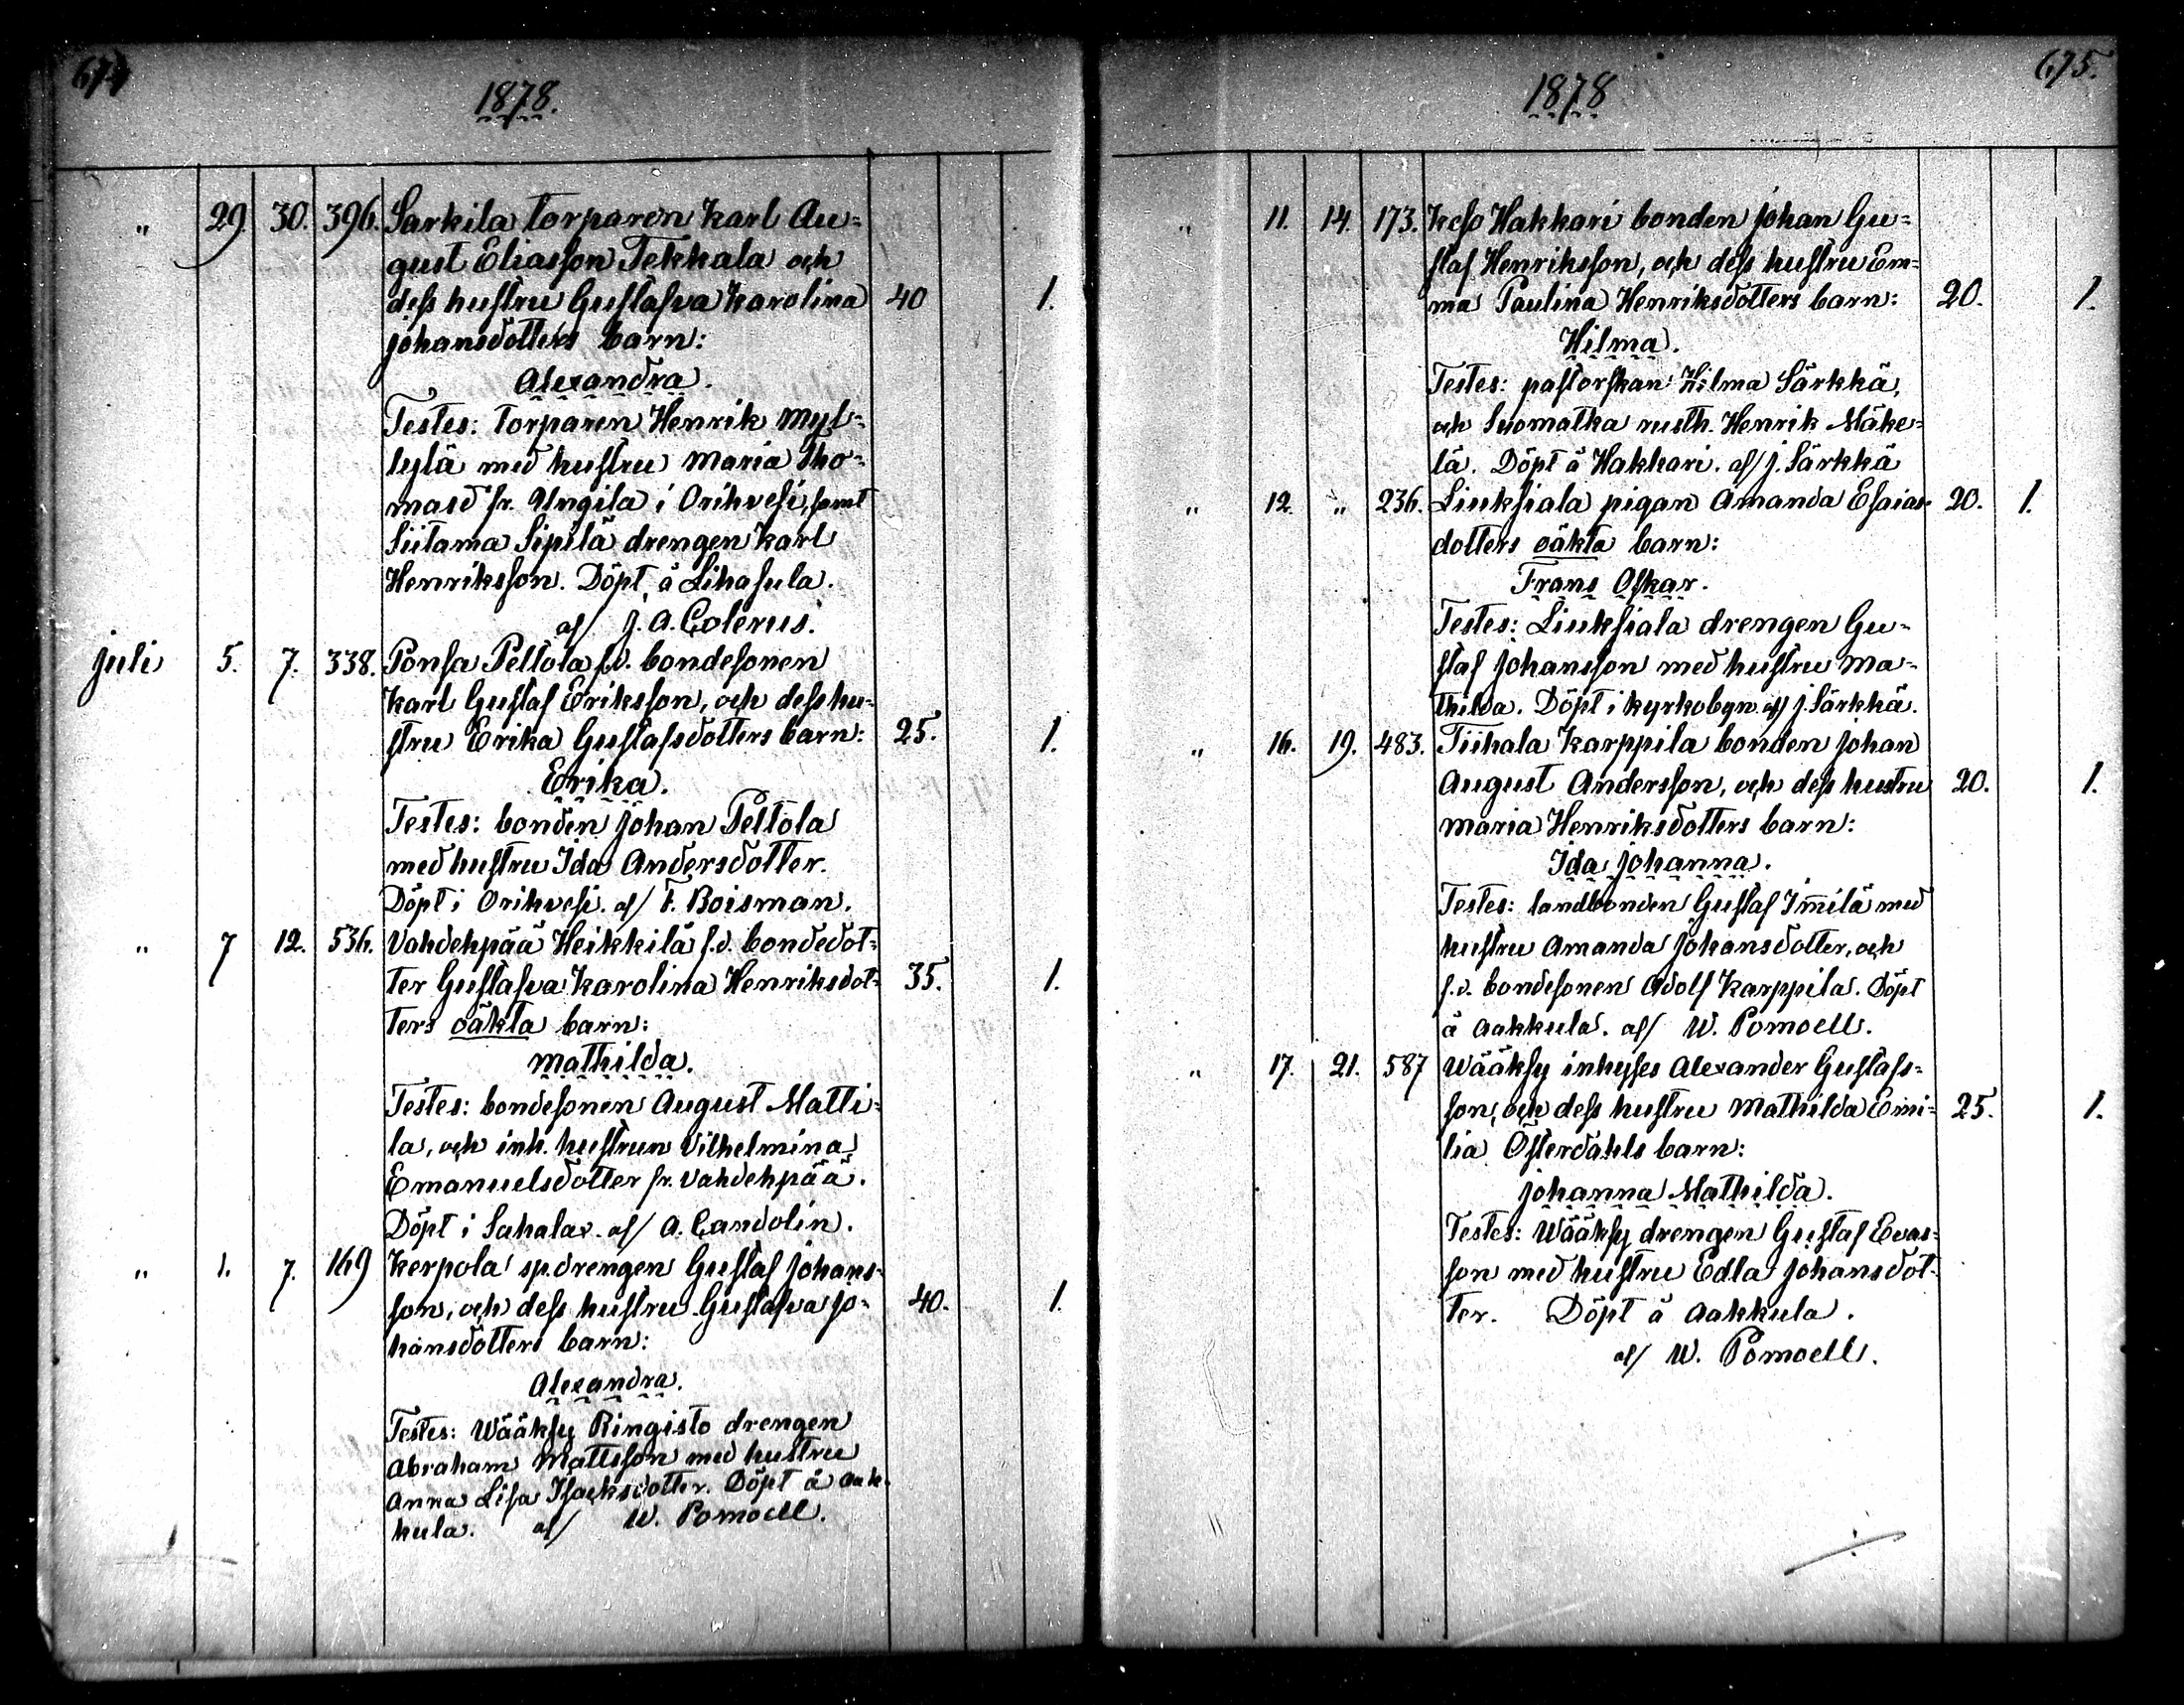 674
1878.
" 29. 30. 396. Sarkila torparen Karl Au-
gust Eliasson Tekkala och
dess hustru Gustafva Karolina 40 1.
Johansdotters barn:
Alexandra.
Testes: torparen Henrik Myl-
lylä med hustru Maria Tho-
masd fr. Yngila i Orihvesi, samt
Siitama Sipilä drengen Karl
Henriksson. Döpt å Lihasula.
af J. A. Colerus.
Juli 5. 7. 338. Ponsa Peltola f.d. bondesonen
Karl Gustaf Eriksson, och dess hu-
stru Erika Gustafsdotters barn: 25. 1.
Erika.
Testes: bonden Johan Peltola
med hustru Ida Andersdotter.
Döpt i Orihvesi. af F. Boisman.
" 7 12. 536. Vahdehpää Heikkilä f.d. bondedot-
ter Gustafva Karolina Henriksdot- 35. 1.
ters oäkta barn:
Mathilda.
Testes: bondesonen August Matti-
la, och inh. hustrun Vilhelmina
Emanuelsdotter fr. Vahdehpää.
Döpt i Sahalax. af A. Candolin.
" 1. 7. 169 Kerpola sp.drengen Gustaf Johans-
son, och dess hustru Gustafva Jo- 40. 1.
hansdotters barn:
Alexandra.
Testes: Wääksy Ringisto drengen
Abraham Mattsson med hustru
Anna Lisa Isacksdotter. Döpt å Aak-
kula. af W. Pomoell.
675.
1878
" 11. 14. 173. Keso Hakkari bonden Johan Gu-
staf Henriksson, och dess hustru Em-
ma Paulina Henriksdotters barn: 20. 1.
Hilma.
Testes: pastorskan Hilma Särkkä,
och Suomatka rusth. Henrik Mäke-
lä. Döpt å Hakkari. af J. Särkkä
" 12. " 236. Liuksiala pigan Amanda Esaias- 20. 1.
dotters oäkta barn:
Frans Oskar.
Testes: Liuksiala drengen Gu-
staf Johansson med hustru Ma-
thilda. Döpt i kyrkobyn af J. Särkkä.
" 16. 19. 483. Tiihala Karppila bonden Johan
August Andersson, och dess hustru 20. 1.
Maria Henriksdotters barn:
Ida Johanna.
Testes: landbonden Gustaf Im̅ilä med
hustru Amanda Johansdotter, och
f.d. bondesonen Adolf Karppila. Döpt
å Aakkula. af W. Pomoell.
" 17. 21. 587 Wääksy inhyses Alexander Gustafs-
son, och dess hustru Mathilda Emi- 25. 1.
lia Österdahls barn:
Johanna Mathilda.
Testes: Wääksy drengen Gustaf Evas-
son med hustru Edla Johansdot-
ter. Döpt å Aakkula.
af W. Pomoell.